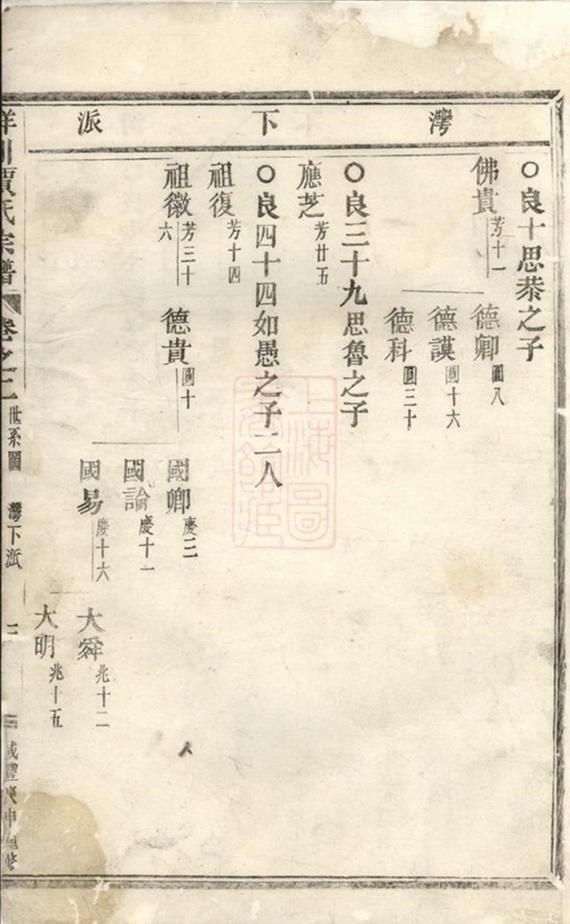 灣下派
○良十思恭之子
佛貴芳十一
德卿圓八
德謨圓十六
德科圓三十
○良三十九思魯之子
應芝芳廿五
○良四十四如愚之子二人
祖復芳十四
祖徽芳三十六
德貴圓十
國卿慶三
國論慶十一
國易慶十六
大舜兆十二
大明兆十五
賈氏宗譜 卷之三 世系圖 灣下派
咸豐庚申